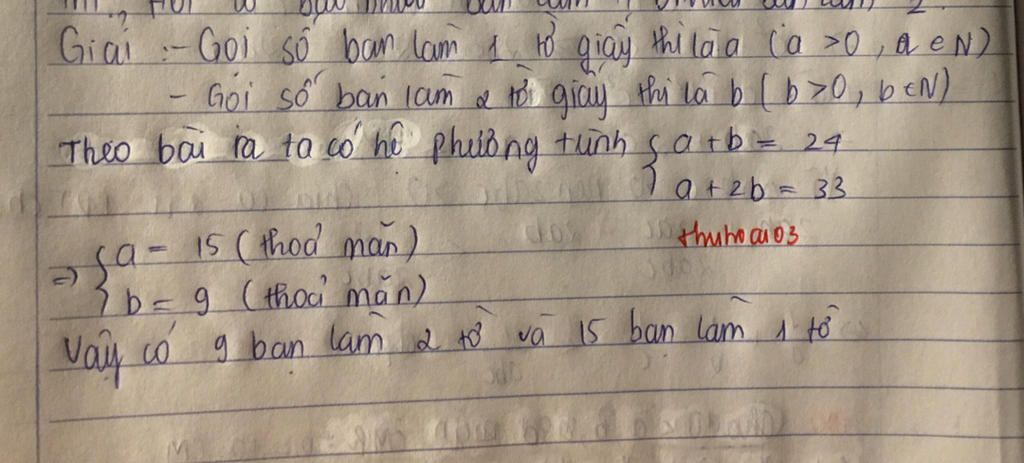 Giải :- Gọi số bạn làm 1 tờ giấy thi là a (a >0, a ∈ N)
- Gọi số bạn làm 2 tờ giấy thi là b (b >0, b ∈ N)
Theo bài ra ta có hệ phương trình { a + b = 24
a + 2b = 33
=> { a = 15 (thoả mãn)
thuhoai03
b = 9 (thoả mãn)
Vậy có 9 bạn làm 2 tờ và 15 bạn làm 1 tờ